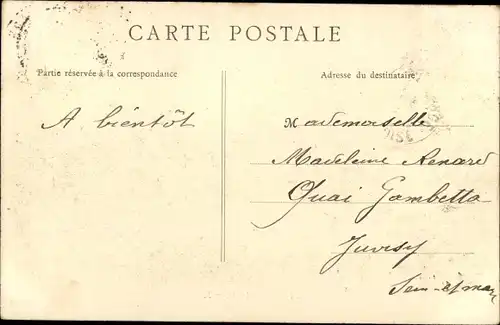 CARTE POSTALE
Partie réservée à la correspondance
Adresse du destinataire
A bientôt
Mademoiselle
Madeleine Renard
Quai Gambetta
Juvisy